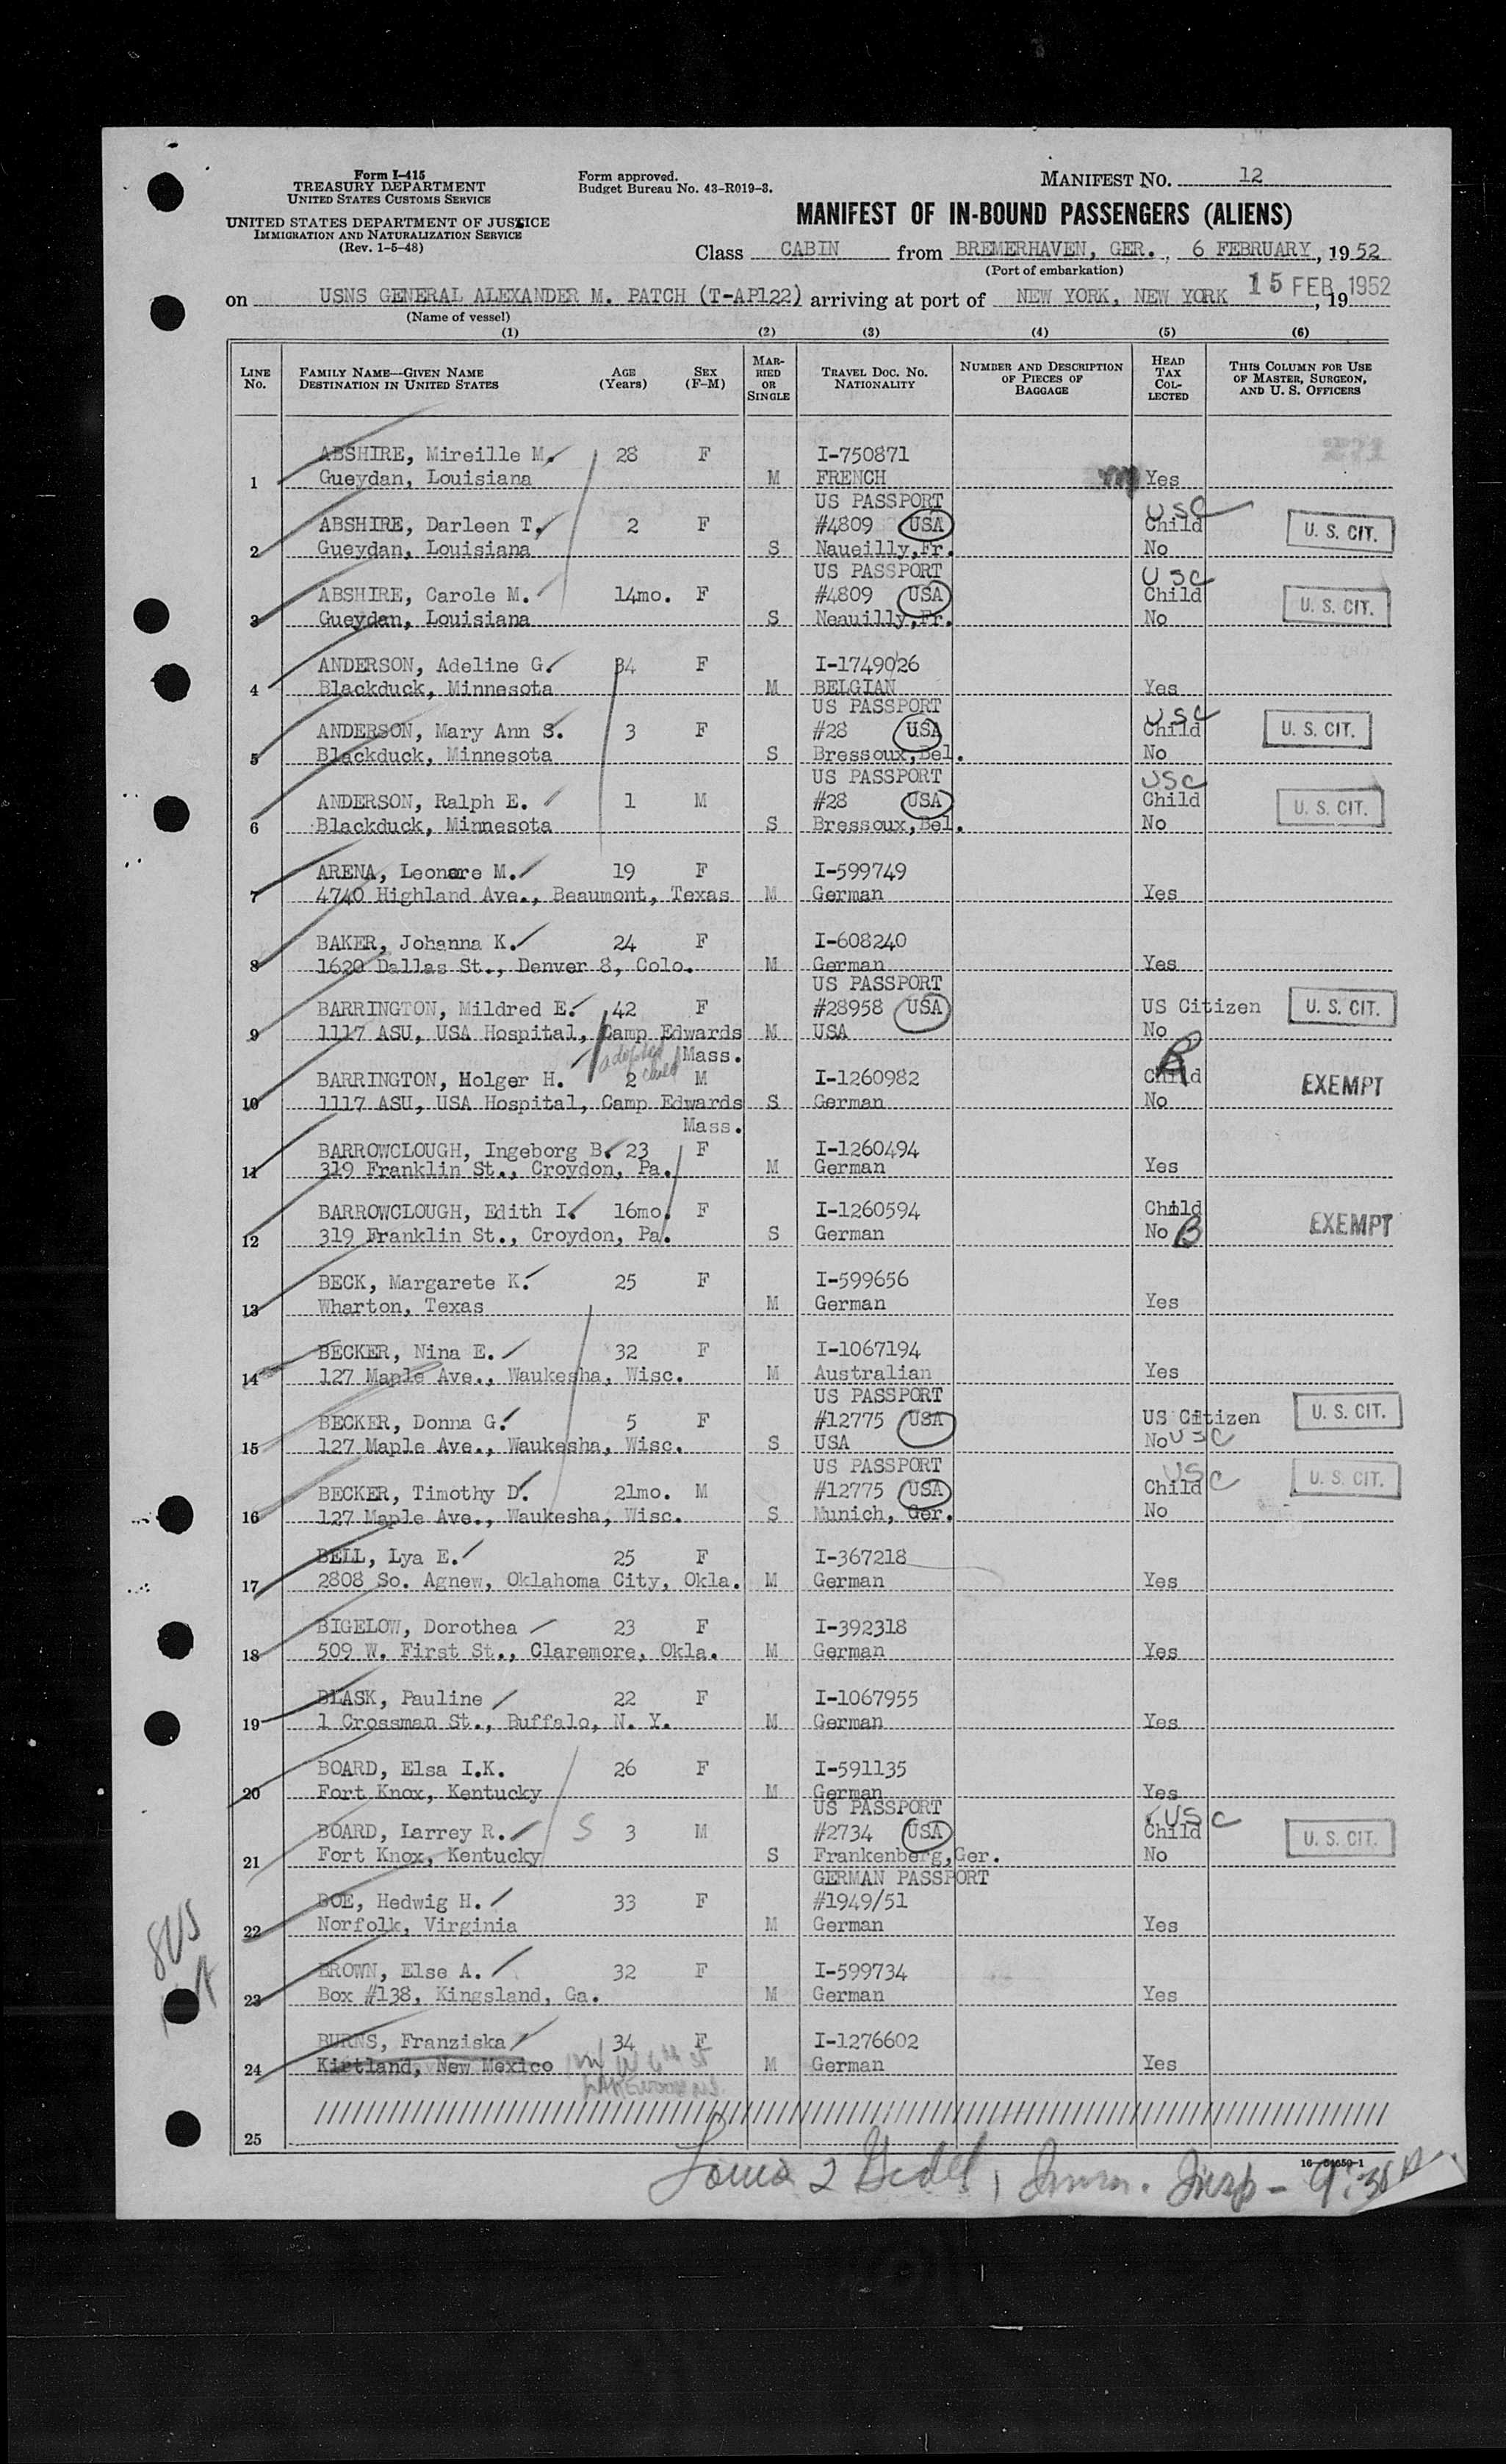 Form I-415
TREASURY DEPARTMENT
UNITED STATES CUSTOMS SERVICE
UNITED STATES DEPARTMENT OF JUSTICE
IMMIGRATION AND NATURALIZATION SERVICE
(Rev. 1-5-48)
Form approved.
Budget Bureau No. 43-R019-3.
MANIFEST NO. 12
MANIFEST OF IN-BOUND PASSENGERS (ALIENS)
Class CABIN from BREMERHAVEN, GER., 6 FEBRUARY, 1952
(Port of embarkation)
on USNS GENERAL ALEXANDER M. PATCH (T-AP122) arriving at port of NEW YORK, NEW YORK 15 FEB 1952, 19
(Name of vessel)
(1) (2) (3) (4) (5) (6)
LINE No. FAMILY NAME—GIVEN NAME DESTINATION IN UNITED STATES AGE (Years) SEX (F-M) MARRIED OR SINGLE TRAVEL DOC. NO. NATIONALITY NUMBER AND DESCRIPTION OF PIECES OF BAGGAGE HEAD TAX COLLECTED THIS COLUMN FOR USE OF MASTER, SURGEON, AND U. S. OFFICERS
ABSHIRE, Mireille M. 28 F I-750871
1 Gueydan, Louisiana M FRENCH Yes
US PASSPORT USC
ABSHIRE, Darleen T. 2 F #4809 USA Child U. S. CIT.
2 Gueydan, Louisiana S Naueilly,Fr. No
US PASSPORT USC
ABSHIRE, Carole M. 14mo. F #4809 USA Child U. S. CIT.
3 Gueydan, Louisiana S Neauilly,Fr. No
ANDERSON, Adeline G. 34 F I-1749026
4 Blackduck, Minnesota M BELGIAN Yes
US PASSPORT USC
ANDERSON, Mary Ann S. 3 F #28 USA Child U. S. CIT.
5 Blackduck, Minnesota S Bressoux,Bel. No
US PASSPORT USC
ANDERSON, Ralph E. 1 M #28 USA Child U. S. CIT.
6 Blackduck, Minnesota S Bressoux,Bel. No
ARENA, Leonore M. 19 F I-599749
7 4740 Highland Ave., Beaumont, Texas M German Yes
BAKER, Johanna K. 24 F I-608240
8 1620 Dallas St., Denver 8, Colo. M German Yes
US PASSPORT
BARRINGTON, Mildred E. 42 F #28958 USA US Citizen U. S. CIT.
9 1117 ASU, USA Hospital, Camp Edwards M USA No
Mass.
adopted child
BARRINGTON, Holger H. 2 M I-1260982 Child EXEMPT
10 1117 ASU, USA Hospital, Camp Edwards S German No
Mass.
BARROWCLOUGH, Ingeborg B. 23 F I-1260494
11 319 Franklin St., Croydon, Pa. M German Yes
BARROWCLOUGH, Edith I. 16mo. F I-1260594 Child EXEMPT
12 319 Franklin St., Croydon, Pa. S German No B
BECK, Margarete K. 25 F I-599656
13 Wharton, Texas M German Yes
BECKER, Nina E. 32 F I-1067194
14 127 Maple Ave., Waukesha, Wisc. M Australian Yes
US PASSPORT
BECKER, Donna G. 5 F #12775 USA US Citizen U. S. CIT.
15 127 Maple Ave., Waukesha, Wisc. S USA No USC
US PASSPORT USC
BECKER, Timothy D. 21mo. M #12775 USA Child U. S. CIT.
16 127 Maple Ave., Waukesha, Wisc. S Munich, Ger. No
BELL, Lya E. 25 F I-367218
17 2808 So. Agnew, Oklahoma City, Okla. M German Yes
BIGELOW, Dorothea 23 F I-392318
18 509 W. First St., Claremore, Okla. M German Yes
BLASK, Pauline 22 F I-1067955
19 1 Crossman St., Buffalo, N. Y. M German Yes
BOARD, Elsa I.K. 26 F I-591135
20 Fort Knox, Kentucky M German Yes
US PASSPORT USC
BOARD, Larrey R. S 3 M #2734 USA Child U. S. CIT.
21 Fort Knox, Kentucky S Frankenberg,Ger. No
GERMAN PASSPORT
BOE, Hedwig H. 33 F #1949/51
22 Norfolk, Virginia M German Yes
BROWN, Else A. 32 F I-599734
23 Box #138, Kingsland, Ga. M German Yes
BURNS, Franziska 34 F I-1276602
24 Kirtland, New Mexico M German Yes
W 6th St
LAKEWOOD NJ
25
16—54650-1
Imm. Insp - 9:30